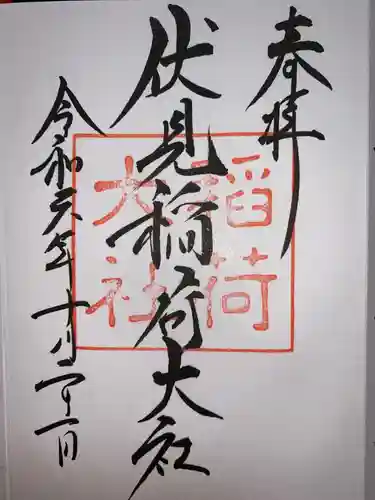 奉拝
伏見稲荷大社
稲荷
大社
令和六年十月二十一日